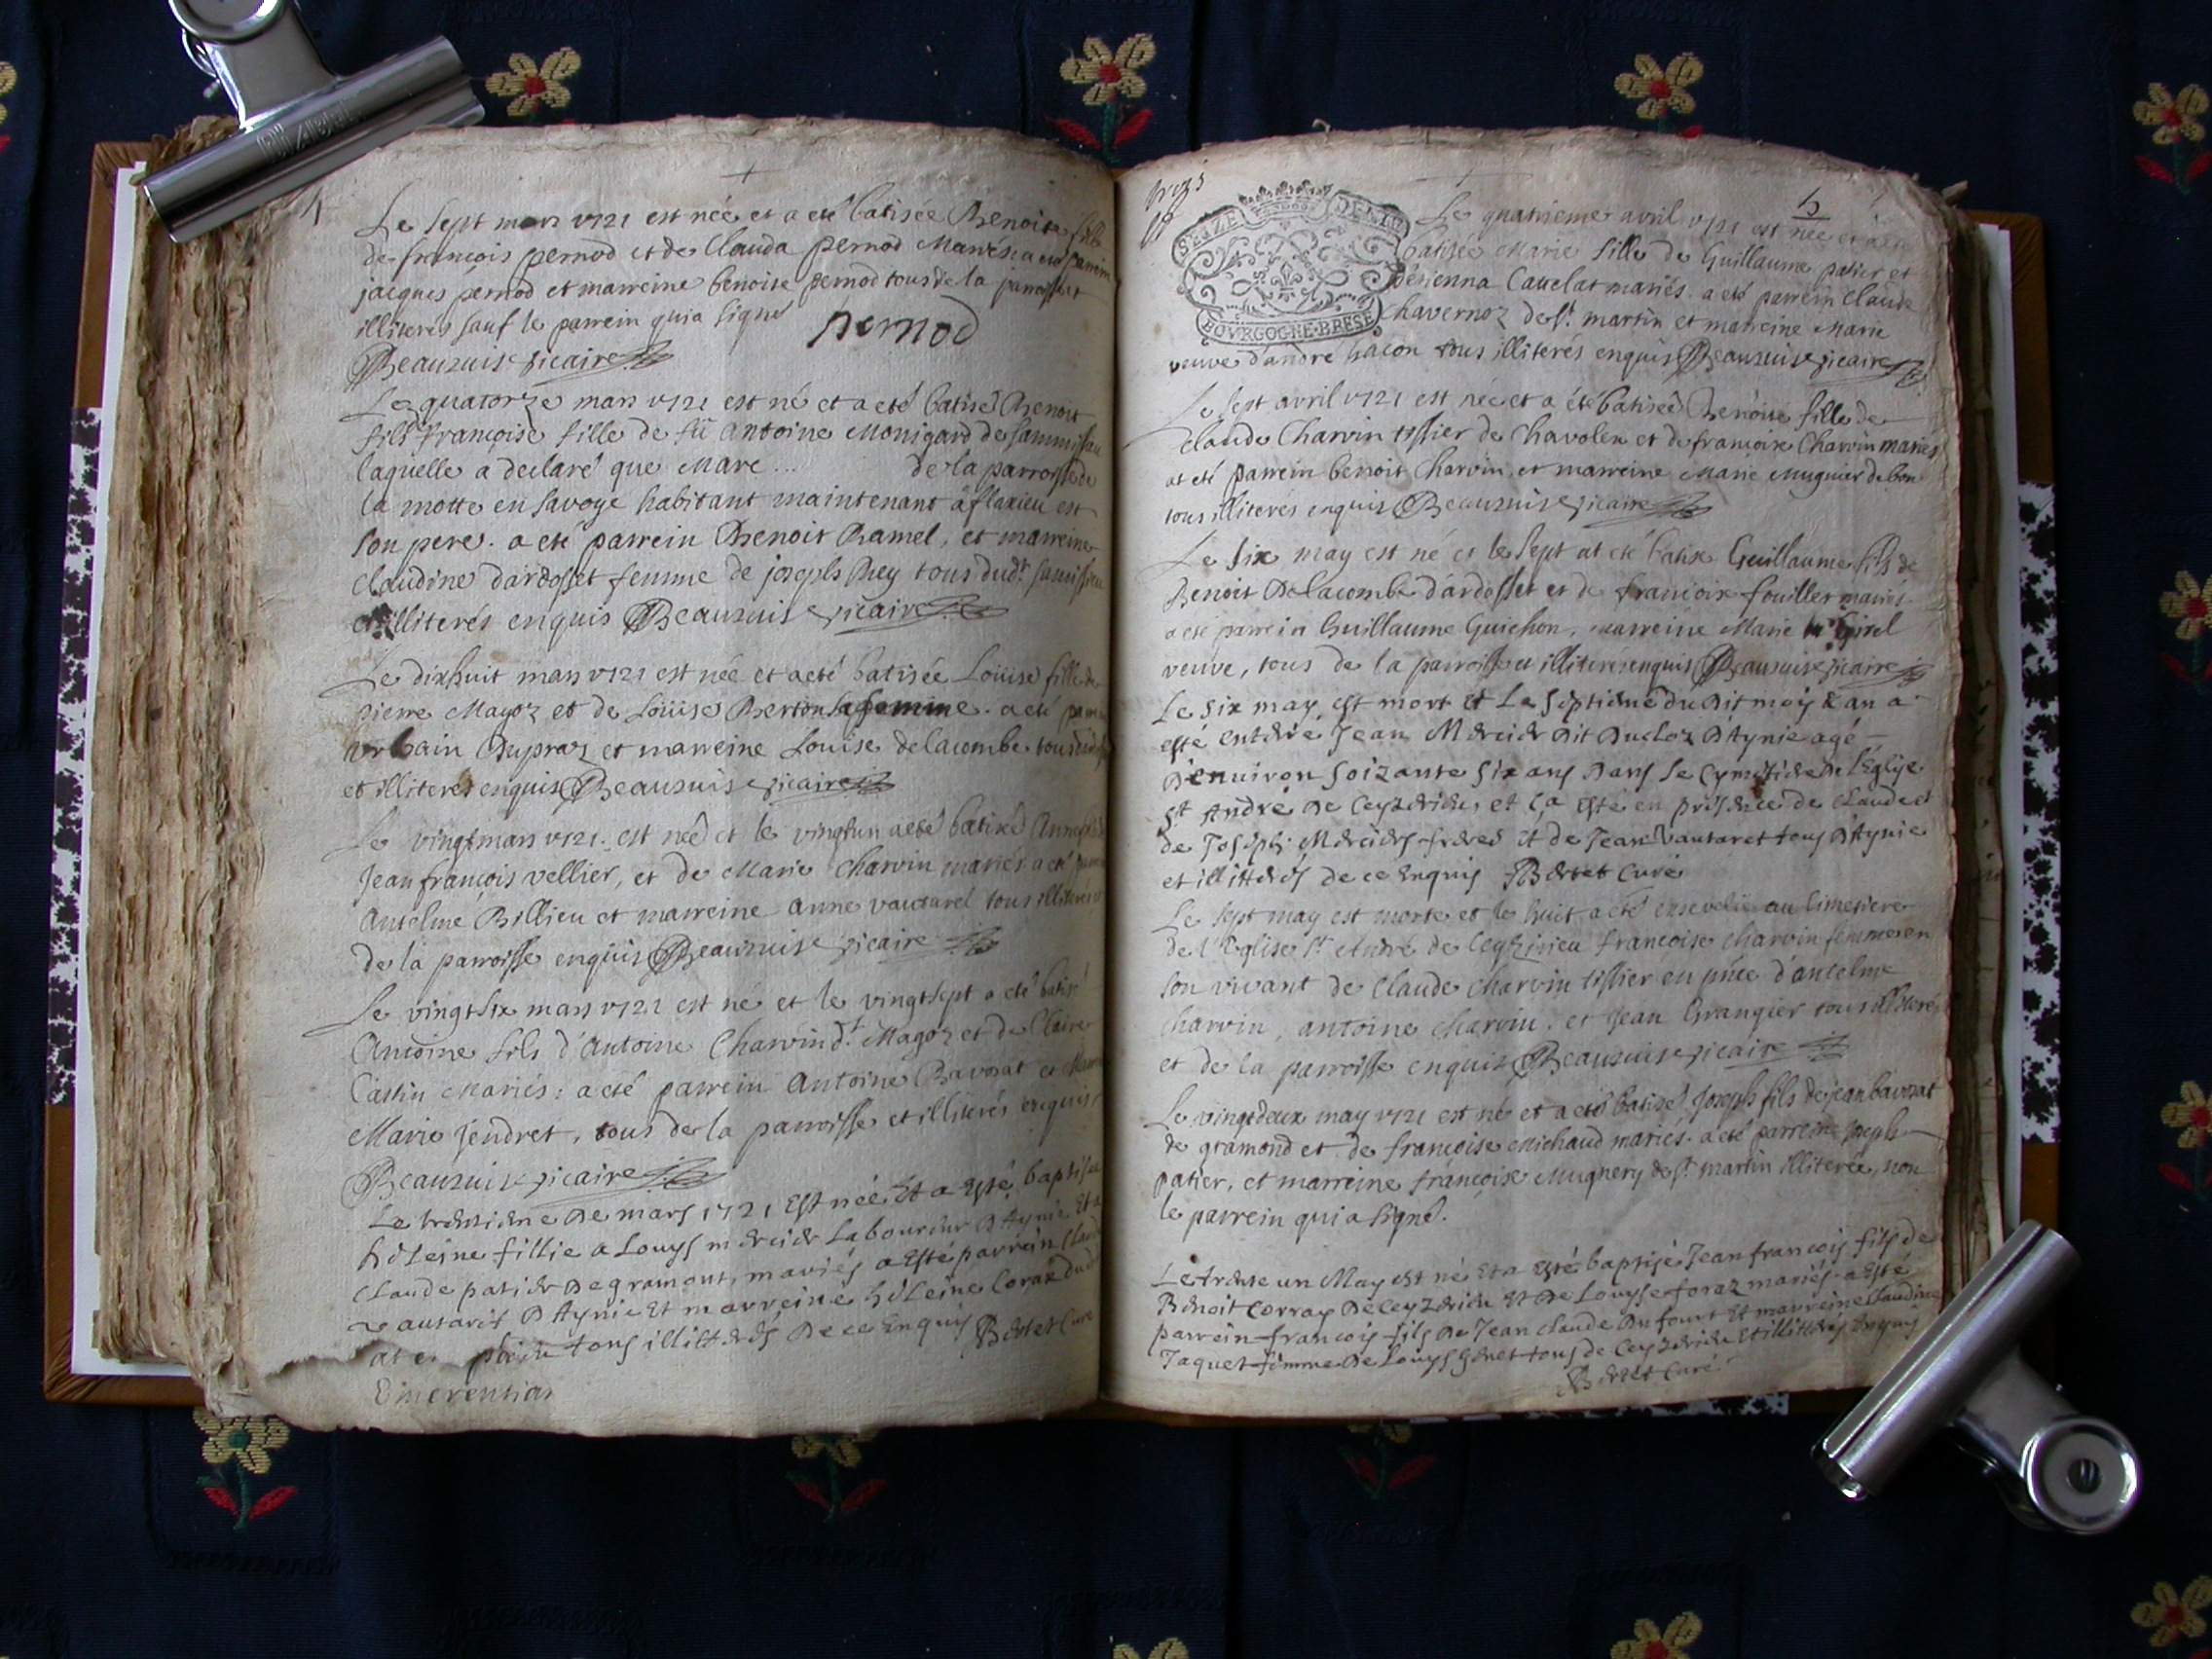 Le sept mars 1721 est née et a eté batisée Benoite fille
de françois pernod et de Clauda pernod Mariés a eté parrein
jacques pernod et marreine benoite pernod tous de la parroisse et
illiterés sauf le parrein qui a signé pernod
Beauzuis vicaire
Le quatorze mars 1721 est né et a eté batisé Benoit
fils françoise fille de fû Antoine Monigard de
laquelle a declaré que Marc ... de la parroisse de
la motte en savoye habitant maintenant à flaxieu est
son pere. a eté parrein Benoit Ramel, et marreine
claudine d'ardosset femme de joseph Rey tous dudt
et illiterés enquis Beauzuis vicaire
Le dixhuit mars 1721 est née et a eté batisée Loüise fille de
pierre Magoz et de Loüise Berton sa femme. a eté
urbain Dupraz et marreine Louise delacombe tous
et illiterés enquis Beauzuis vicaire
Le vingt mars 1721. est née et le vingtun a eté batisée Anne
Jean françois vellier, et de Marie Charvin mariés a eté
Antelme Billieu et marreine anne vautaret tous illiterés
de la parroisse enquis Beauzuis vicaire
Le vingt six mars 1721 est né et le vingtsept a eté batisé
Antoine fils d'Antoine Charvin dt Magoz et de Claire
Castin Mariés: a eté parrein Antoine Bavozat et
Marie Jendret, tous de la parroisse et illiterés enquis
Beauzuis vicaire
Le trentiene De mars 1721 Est née Et a Esté baptisée
heleine fillie a Louys mercier Laboureur D'Aynie Et a
Claude patier De gramont, mariés a Esté parrein Claude
vautaret D'Aynie Et marreine heleine Coraz
at et tous illitterés De ce Enquis Bertet Curé
Emerentian
SEIZE DENIE
BOVRGOGNE·BRESE
5
Le quatrieme avril 1721 est née et a eté
batisée Marie fille de Guillaume patier et
perienna Cattelat mariés. a eté parrein claude
chavernoz de st. martin et marreine Marie
veuve d'andre hacon tous illiterés enquis Beauzuis vicaire
Le sept avril 1721 est née et a été batisée Benoite fille de
claude Charvin tissier de Chavolex et de françoise Charvin mariés
at eté parrein benoit Charvin, et marreine Marie Mugnier de bon
tous illiterés enquis Beauzuis vicaire
Le six may est né et le sept at eté batisé Guillaume fils de
Benoit Delacombe d'ardosset et de françoise fouiller mariés.
a eté parrein Guillaume Guichon, marreine Marie
veuve, tous de la parroisse et illiterés enquis Beauzuis vicaire
Le six may est mort et Le septieme du Dit mois & an a
esté enterré Jean Mercier Dit Ducloz D'Aynie agé
D'enuiron soizante six ans Dans le Cymetiere De l'Eglise
st André De Ceyzerieu, et ç'a esté en presence de claude et
de Joseph Merciers freres Et de Jean Vautaret tous D'Aynie
et illitterés de ce Enquis Bertet Curé
Le sept may est morte et le huit a eté ensevelie au Cimetiere
de l'Eglise st André de Ceyzirieu françoise charvin femme en
son vivant de Claude Charvin tissier en pñce d'antelme
charvin, antoine charvin, et Jean Grangier tous illiterés
et de la parroisse enquis Beauzuis vicaire
Le vingtdeux may 1721 est né et a eté batisé Joseph fils de jean bavozat
de gramond et de françoise Michaud mariés. a eté parrein Joseph
patier, et marreine françoise Mugnery de st martin illiterée, non
le parrein qui a signé.
Le trente un May est né Et a esté baptisé Jean françois fils de
Benoit Corraz De Ceyzerieu Et De Louyse foraz mariés. a Esté
parrein françois fils De Jean claude Dufourt Et marreine claudine
Jaquet femme De Louys Genet tous de Ceyzerieu Et illitterés Enquis
Bertet Curé